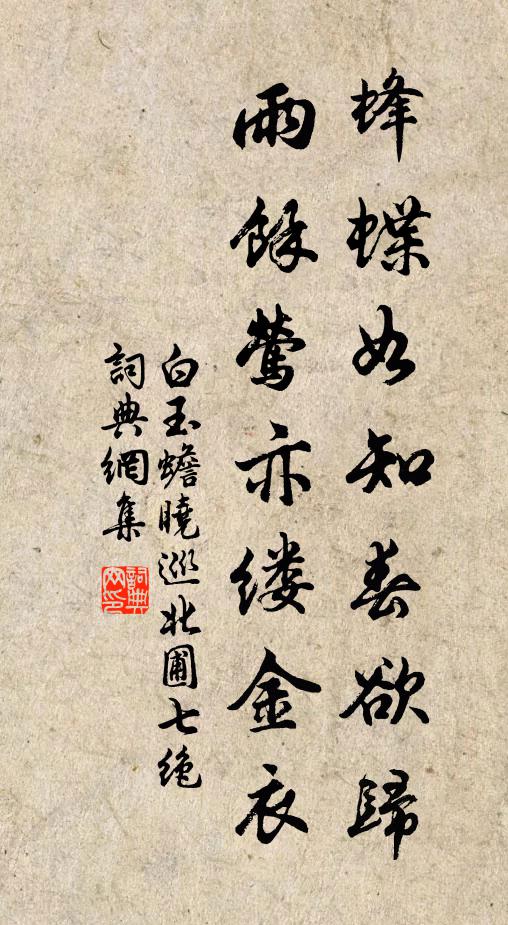 蜂蝶如知春欲歸
雨餘鶯亦缕金衣
白玉蟾曉巡北圃七絶
詞典網集
詞典網印